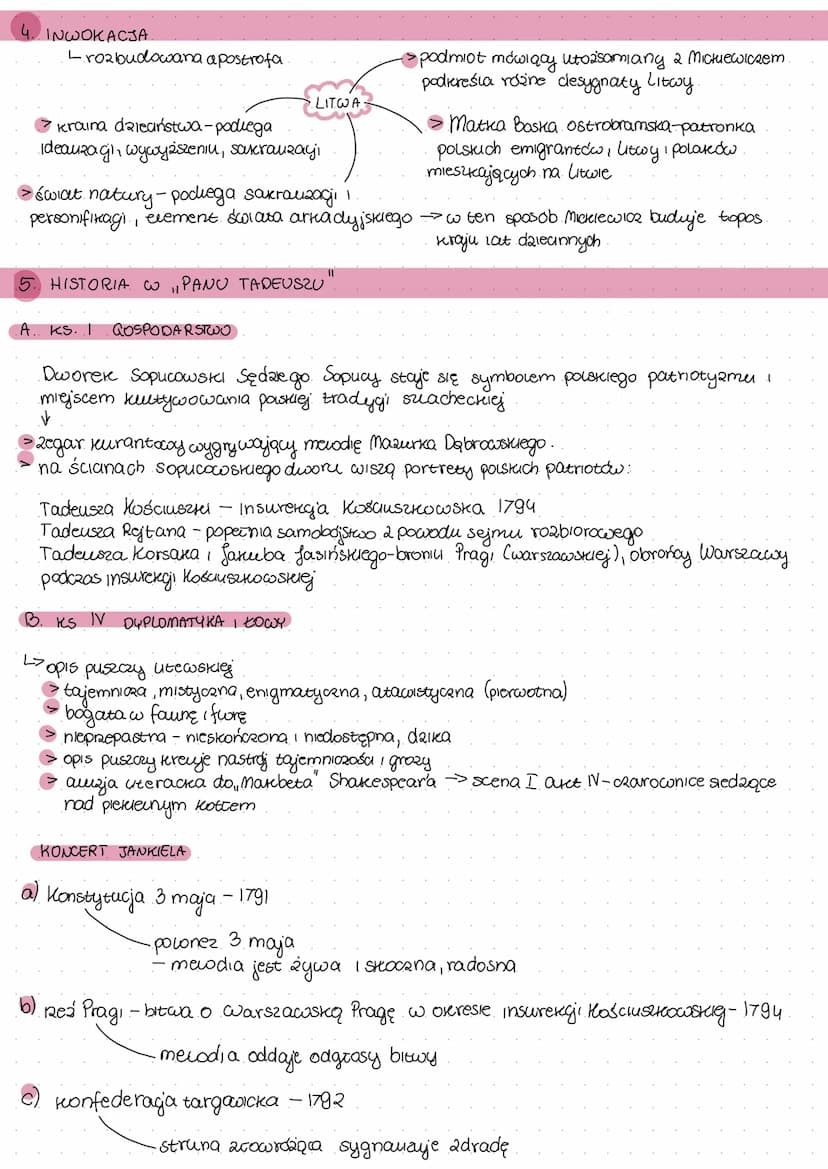 4. INWOKACJA
↳ rozbudowana apostrofa
LITWA
> podmiot mówiący utożsamiany z Mickiewiczem
podkreśla różne desygnaty Litwy
> kraina dzieciństwa - podlega
idealizacji, wywyższeniu, sakralizacji
> Matka Boska Ostrobramska - patronka
polskich emigrantów, Litwy i polaków
mieszkających na Litwie
> świat natury - podlega sakralizacji i
personifikacji, element świata arkadyjskiego → w ten sposób Mickiewicz buduje topos
kraju lat dziecinnych
5. HISTORIA W „PANU TADEUSZU"
A. KS. I GOSPODARSTWO
Dworek Soplicowski Sędziego Soplicy staje się symbolem polskiego patriotyzmu i
miejscem kultywowania polskiej tradycji szlacheckiej
↓
> zegar kurantowy wygrywający melodię Mazurka Dąbrowskiego.
> na ścianach soplicowskiego dworu wiszą portrety polskich patriotów:
Tadeusza Kościuszki - Insurekcja Kościuszkowska 1794
Tadeusza Rejtana - popełnia samobójstwo z powodu sejmu rozbiorowego
Tadeusza Korsaka i Jakuba Jasińskiego - bronili Pragi (warszawskiej), obrońcy Warszawy
podczas insurekcji Kościuszkowskiej
B. KS IV DYPLOMATYKA I ŁOWY
↳ opis puszczy litewskiej
> tajemnicza, mistyczna, enigmatyczna, atawistyczna (pierwotna)
> bogata w faunę i florę
> nieprzepastna - nieskończona i niedostępna, dzika
> opis puszczy kreuje nastrój tajemniczości i grozy
> aluzja literacka do „Makbeta" Shakespear'a → scena I akt IV - czarownice siedzące
nad piekielnym kotłem
KONCERT JANKIELA
a) Konstytucja 3 maja - 1791
- polonez 3 maja
- melodia jest żywa i skoczna, radosna
b) rzeź Pragi - bitwa o warszawską Pragę w okresie insurekcji Kościuszkowskiej - 1794
- melodia oddaje odgłosy bitwy
c) konfederacja targowicka - 1792
- struna złowróżąca sygnalizuje zdradę